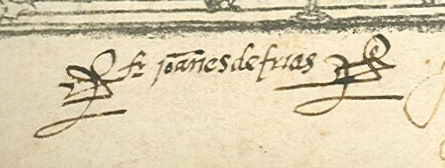 fr joānes de frias